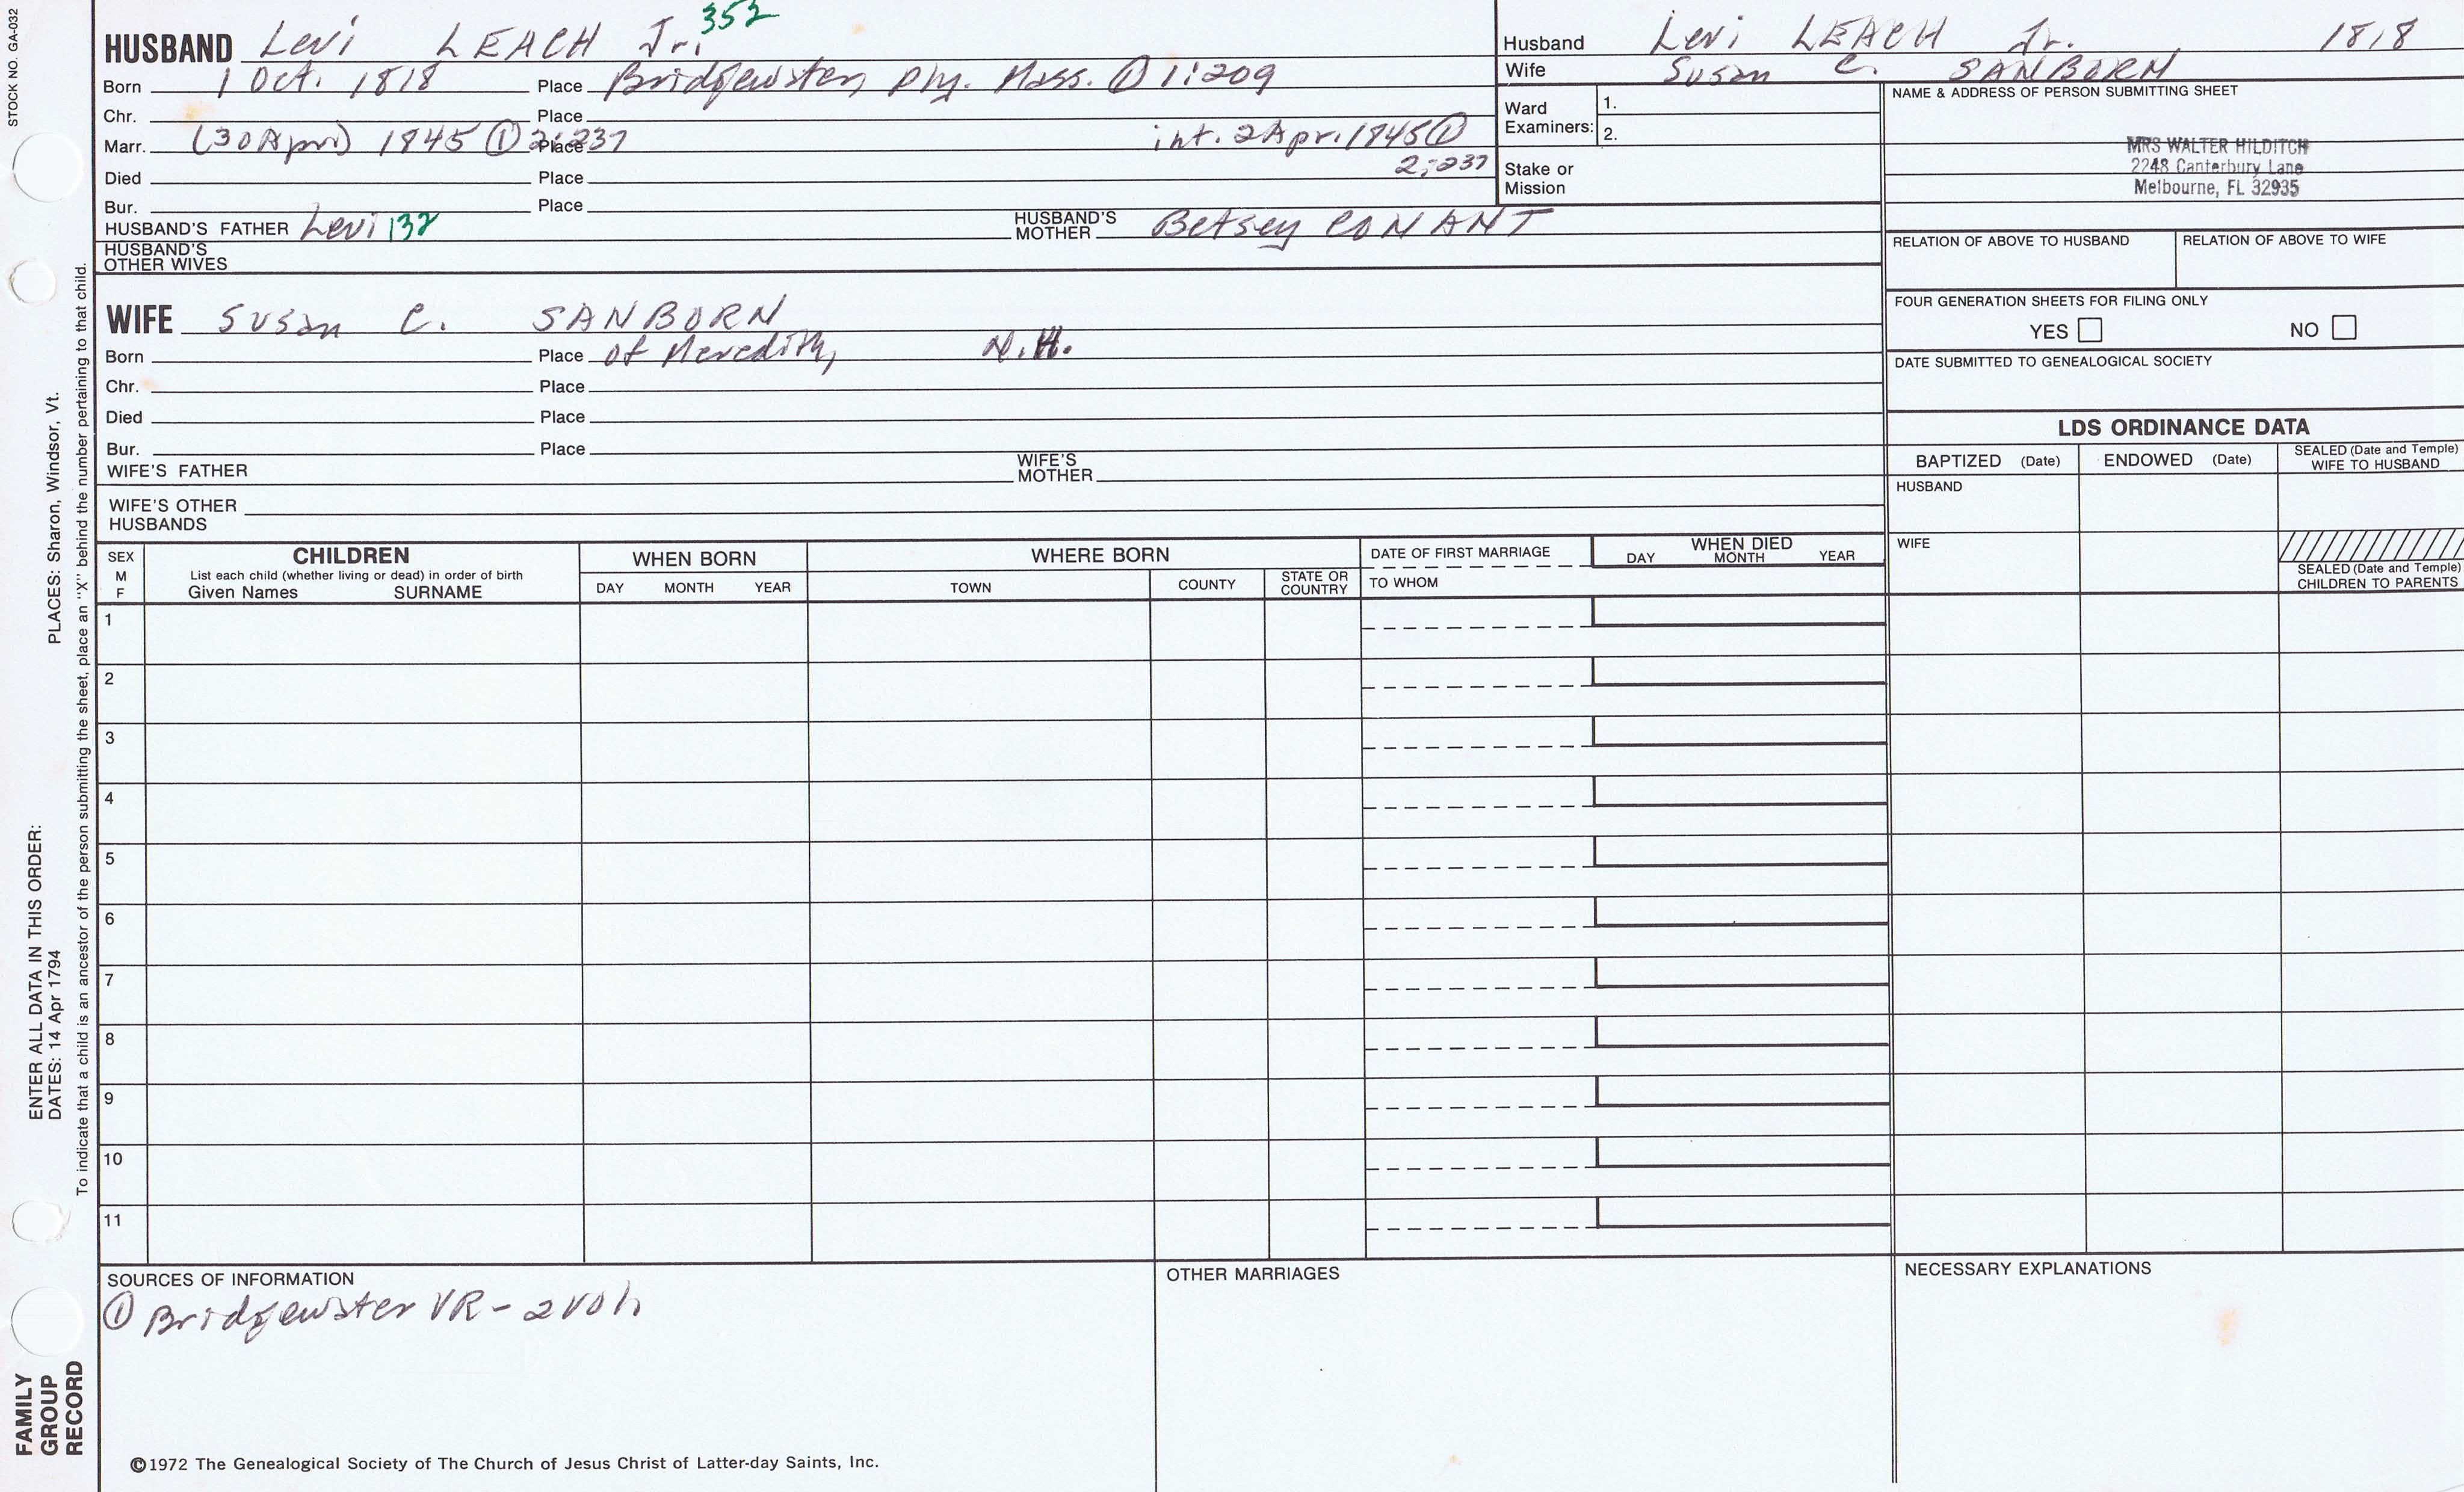 STOCK NO. GA-032
HUSBAND Levi LEACH Jr. 352
Born 1 Oct. 1818 Place Bridgewater, Ply. Mass. ① 1:209
Chr. Place
Marr. (30 April) 1845 ① 2:237 Place int. 2 Apr. 1845 ①
2:237
Died Place
Bur. Place
HUSBAND'S FATHER Levi 132 HUSBAND'S MOTHER Betsey CONANT
HUSBAND'S
OTHER WIVES
WIFE Susan C. SANBORN
Born Place of Meredith, N.H.
Chr. Place
Died Place
Bur. Place
WIFE'S FATHER WIFE'S MOTHER
WIFE'S OTHER
HUSBANDS
Husband Levi LEACH Jr. 1818
Wife Susan C. SANBORN
Ward
Examiners: 1.
2.
Stake or
Mission
NAME & ADDRESS OF PERSON SUBMITTING SHEET
MRS WALTER HILDITCH
2248 Canterbury Lane
Melbourne, FL 32935
RELATION OF ABOVE TO HUSBAND RELATION OF ABOVE TO WIFE
FOUR GENERATION SHEETS FOR FILING ONLY
YES NO
DATE SUBMITTED TO GENEALOGICAL SOCIETY
LDS ORDINANCE DATA
BAPTIZED (Date) ENDOWED (Date) SEALED (Date and Temple)
WIFE TO HUSBAND
HUSBAND
WIFE
SEALED (Date and Temple)
CHILDREN TO PARENTS
SEX
M
F
CHILDREN
List each child (whether living or dead) in order of birth
Given Names SURNAME
WHEN BORN
DAY MONTH YEAR
WHERE BORN
TOWN COUNTY STATE OR
COUNTRY
DATE OF FIRST MARRIAGE
TO WHOM
WHEN DIED
DAY MONTH YEAR
1
2
3
4
5
6
7
8
9
10
11
SOURCES OF INFORMATION
① Bridgewater VR - 2 vol.
OTHER MARRIAGES
NECESSARY EXPLANATIONS
©1972 The Genealogical Society of The Church of Jesus Christ of Latter-day Saints, Inc.
FAMILY
GROUP
RECORD
ENTER ALL DATA IN THIS ORDER:
DATES: 14 Apr 1794 PLACES: Sharon, Windsor, Vt.
To indicate that a child is an ancestor of the person submitting the sheet, place an "X" behind the number pertaining to that child.